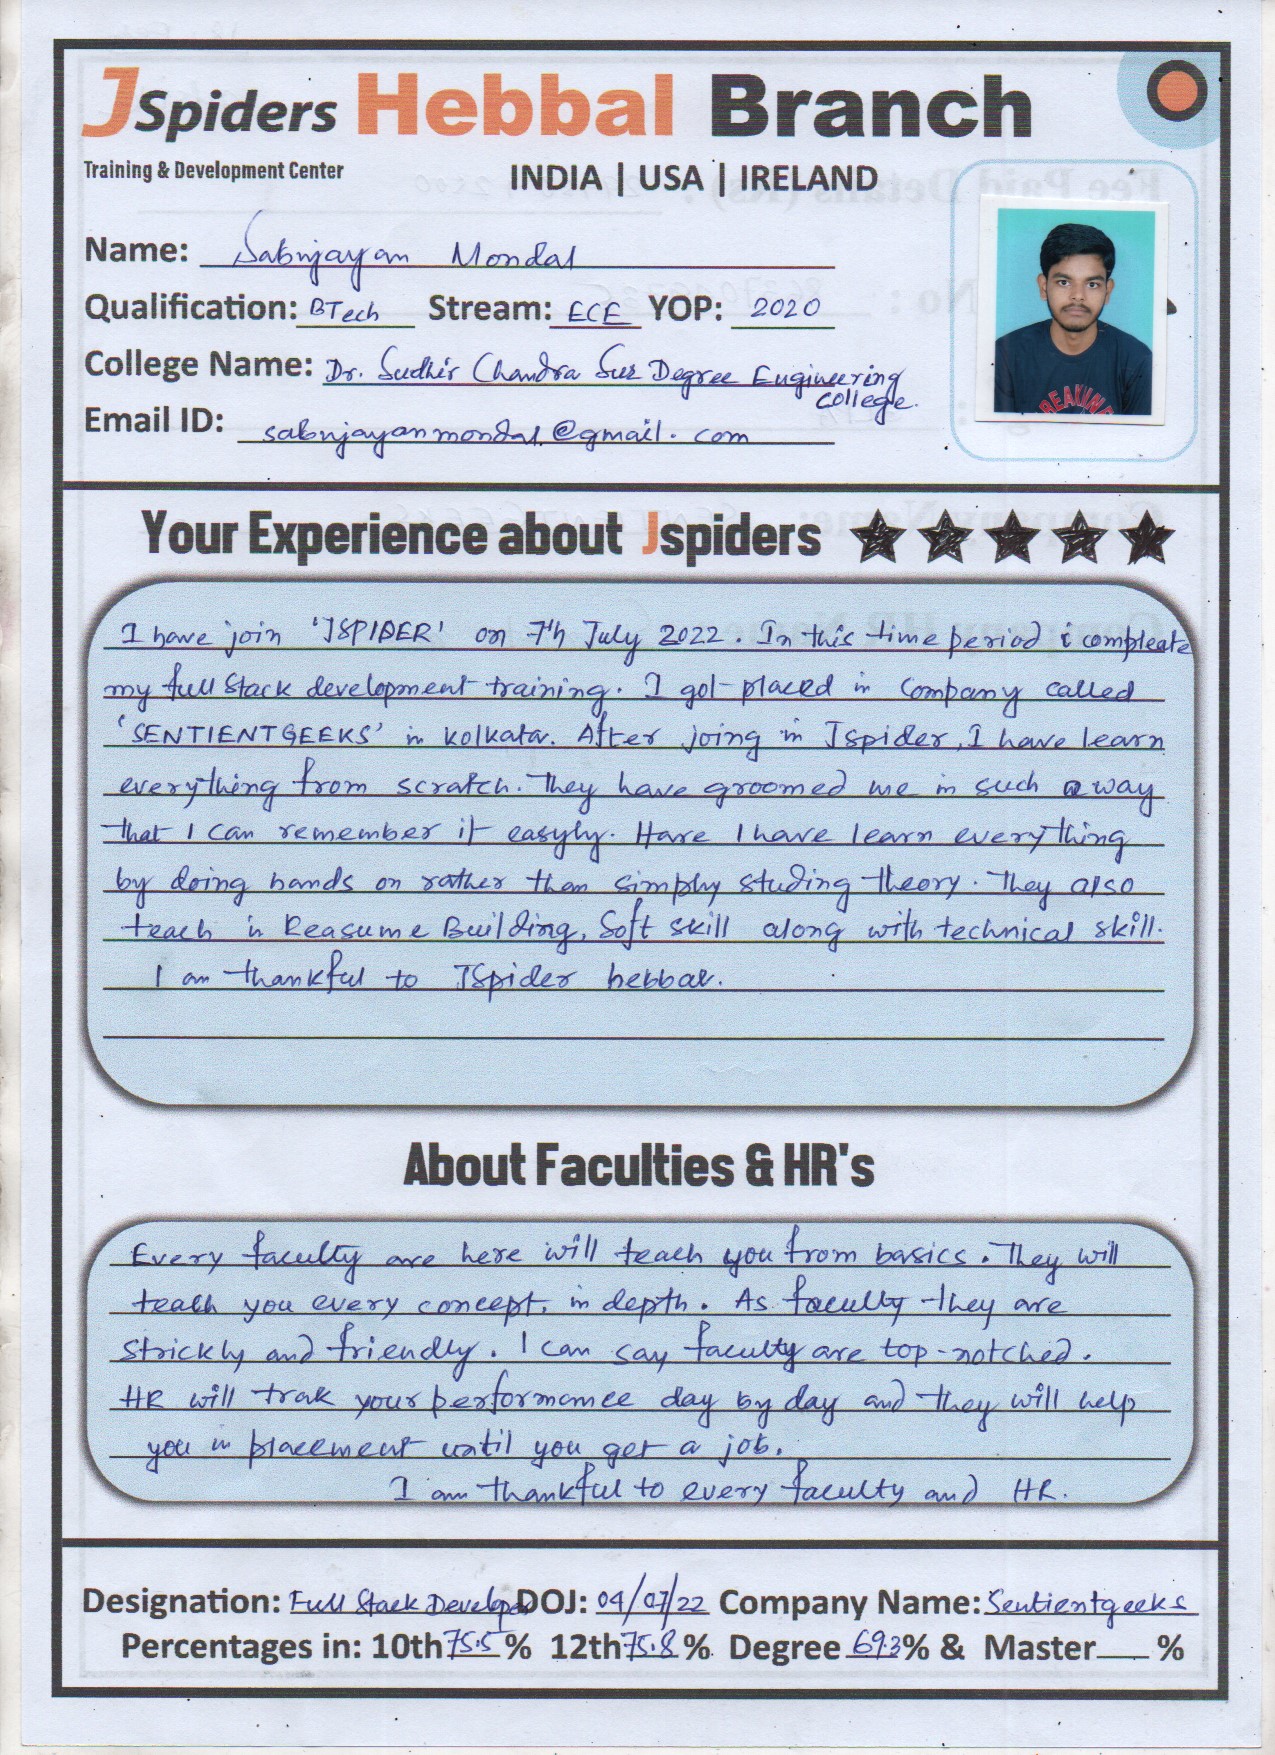 JSpiders Hebbal Branch
Training & Development Center
INDIA | USA | IRELAND
Name: Sabujayan Mondal
Qualification: BTech Stream: ECE YOP: 2020
College Name: Dr. Sudhir Chandra Sur Degree Engineering
college.
Email ID: sabujayanmondal@gmail.com
REAKING
Your Experience about Jspiders
I have join 'JSPIDER' on 7th July 2022. In this time period i compleate
my full stack development training. I got placed in company called
'SENTIENTGEEKS' in kolkata. After joing in Jspider, I have learn
everything from scratch. They have groomed me in such a way
that I can remember it easyly. Hare I have learn everything
by doing hands on rather than simply studing theory. They also
teach in Reasume Building, Soft skill along with technical skill.
I am thankful to JSpider hebbal.
About Faculties & HR's
Every faculty are here will teach you from basics. They will
teach you every concept, in depth. As faculty they are
strickly and friendly. I can say faculty are top-notched.
HR will trak your performance day by day and they will help
you in placement until you get a job.
I am thankful to every faculty and HR.
Designation: Full Stack Developer DOJ: 04/07/22 Company Name: Sentientgeeks
Percentages in: 10th 75.5 % 12th 75.8 % Degree 69.3 % & Master %